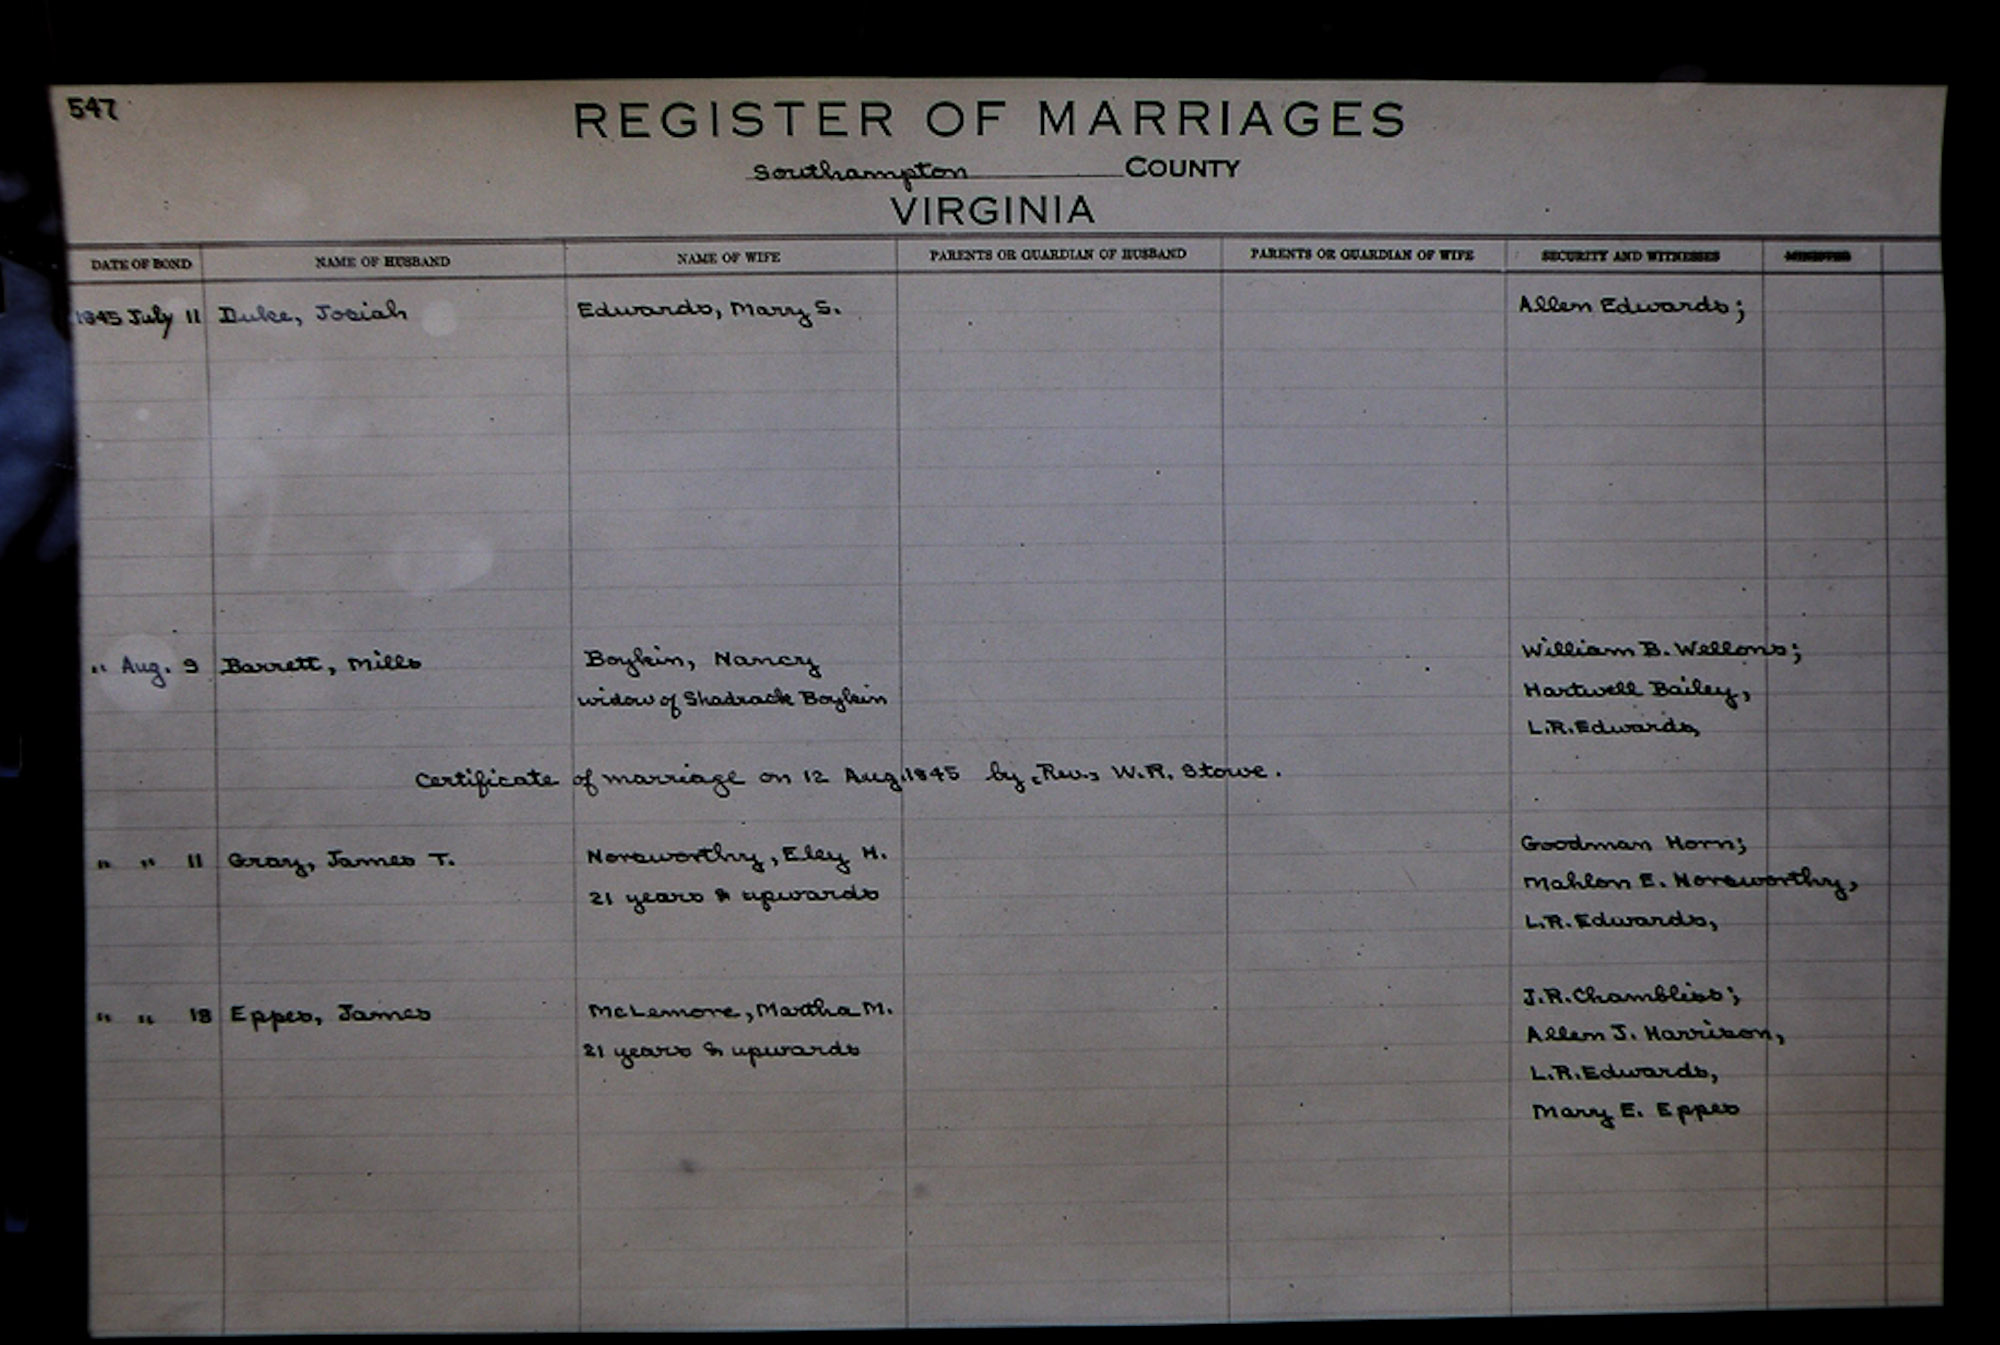 547
REGISTER OF MARRIAGES
Southampton COUNTY
VIRGINIA
DATE OF BOND NAME OF HUSBAND NAME OF WIFE PARENTS OR GUARDIAN OF HUSBAND PARENTS OR GUARDIAN OF WIFE SECURITY AND WITNESSES MINISTER
1845 July 11 Duke, Josiah Edwards, Mary S. Allen Edwards;
" Aug. 9 Barrett, Mills Boykin, Nancy William B. Wellons;
widow of Shadrack Boykin Hartwell Bailey,
L.R. Edwards,
Certificate of marriage on 12 Aug. 1845 by (Rev.) W.R. Stowe.
" " 11 Gray, James T. Norsworthy, Eley H. Goodman Horn;
21 years & upwards Mahlon E. Norsworthy,
L.R. Edwards,
" " 18 Eppes, James McLemore, Martha M. J.R. Chambliss;
21 years & upwards Allen J. Harrison,
L.R. Edwards,
Mary E. Eppes